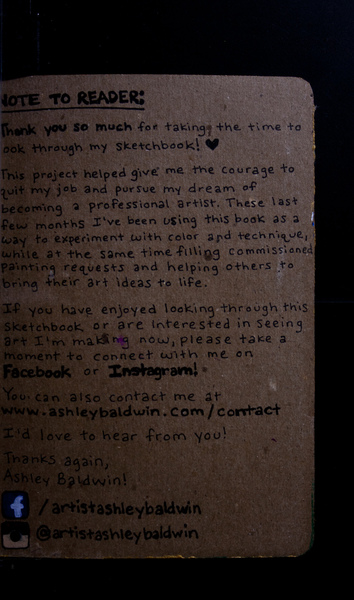 NOTE TO READER:
Thank you so much for taking the time to
look through my sketchbook! ♥
This project helped give me the courage to
quit my job and pursue my dream of
becoming a professional artist. These last
few months I've been using this book as a
way to experiment with color and technique,
while at the same time filling commissioned
painting requests and helping others to
bring their art ideas to life.
If you have enjoyed looking through this
sketchbook or are interested in seeing
art I'm making now, please take a
moment to connect with me on
Facebook or Instagram!
You can also contact me at
www.ashleybaldwin.com/contact
I'd love to hear from you!
Thanks again,
Ashley Baldwin!
f /artistashleybaldwin
@artistashleybaldwin